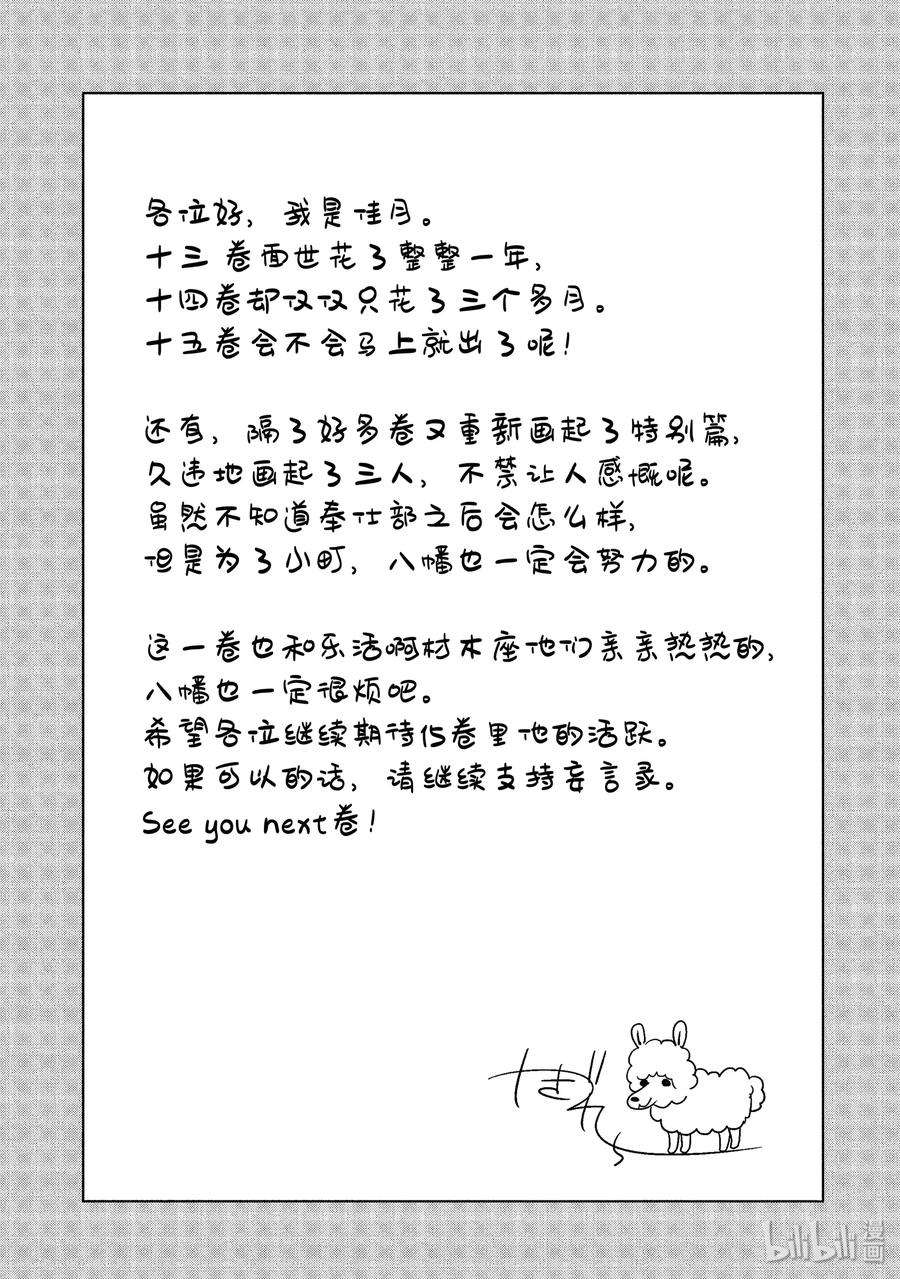 各位好，我是佳月。
十三卷面世花了整整一年，
十四卷却仅仅只花了三个多月。
十五卷会不会马上就出了呢！
还有，隔了好多卷又重新画起了特别篇，
久违地画起了三人，不禁让人感慨呢。
虽然不知道奉仕部之后会怎么样，
但是为了小町，八幡也一定会努力的。
这一卷也和乐活啊材木座他们亲亲热热的，
八幡也一定很烦吧。
希望各位继续期待15卷里他的活跃。
如果可以的话，请继续支持妄言录。
See you next卷！
bilibili漫画